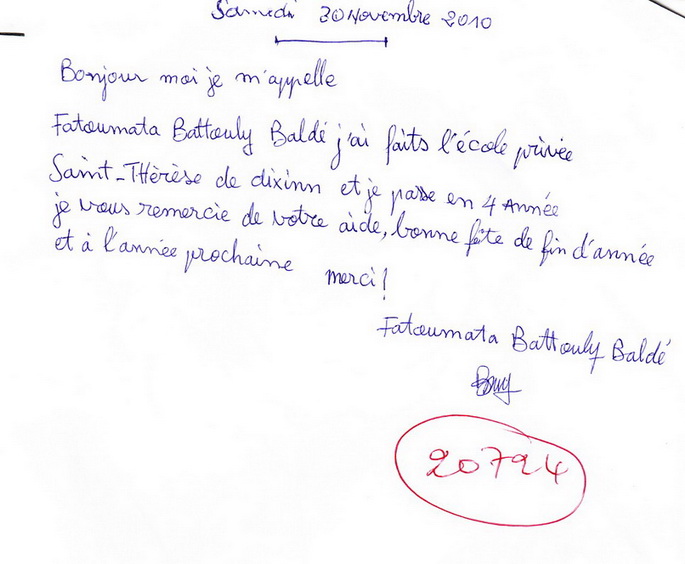 Samedi 30 Novembre 2010
Bonjour moi je m'appelle
Fatoumata Battouly Baldé j'ai faits l'école privée
Saint-Thérèse de dixinn et je passe en 4 Année
je vous remercie de votre aide, bonne fête de fin d'année
et à l'année prochaine merci!
Fatoumata Battouly Baldé
20724